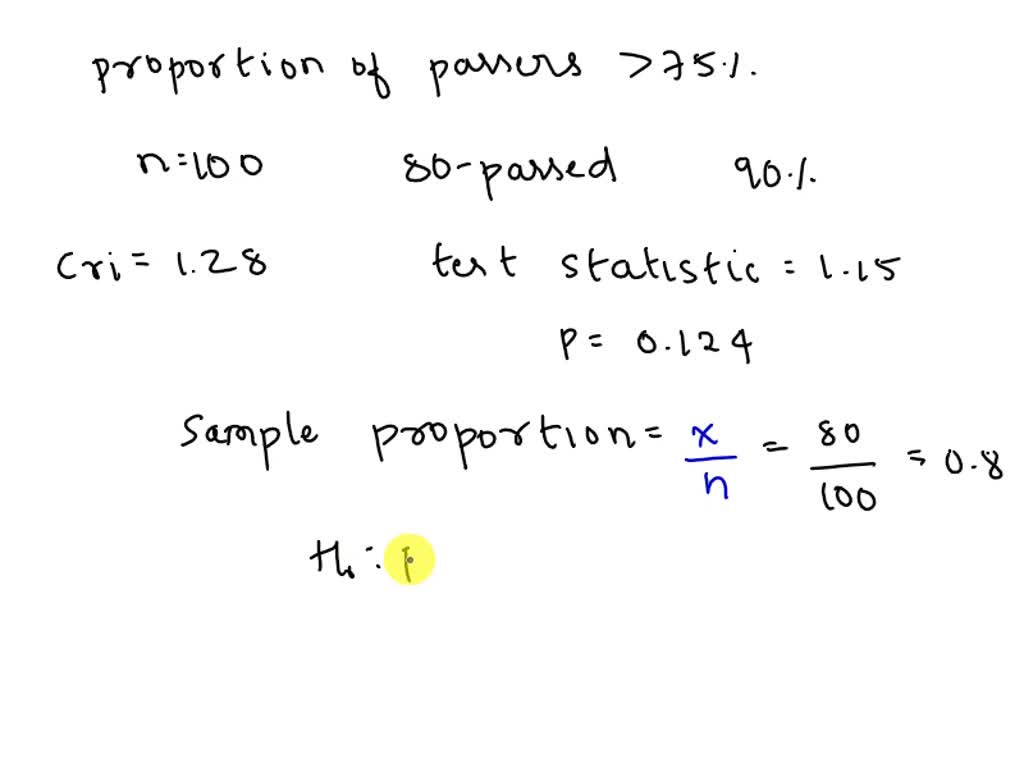 proportion of passers >75%.
n=100 80-passed 90%.
Cri = 1.28 test statistic = 1.15
P= 0.124
Sample proportion = x/n = 80/100 = 0.8
H₀ : p